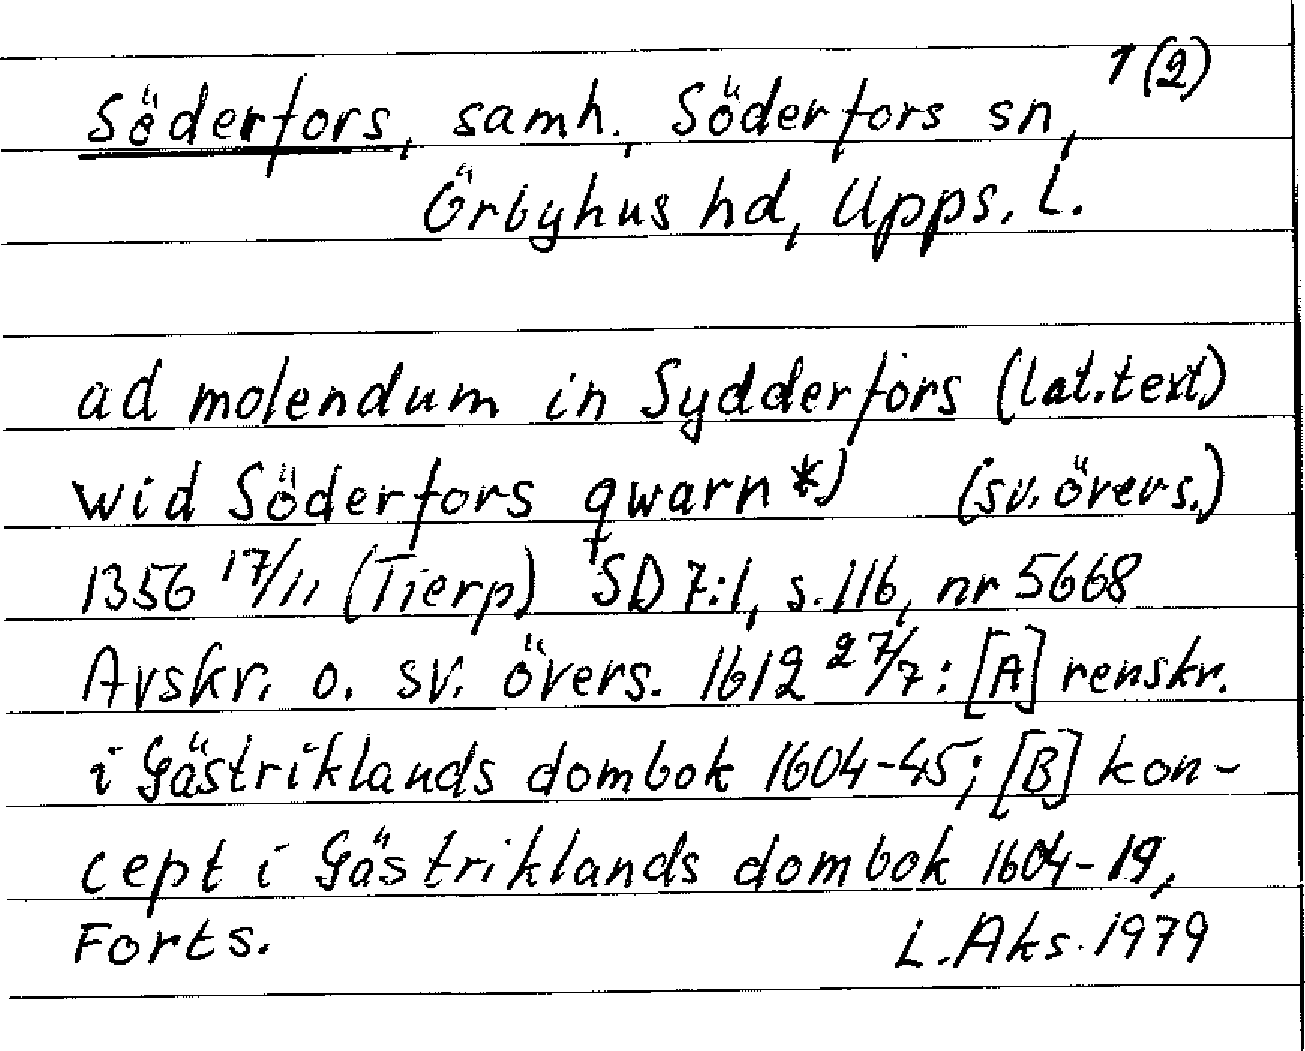 1 (2)
Söderfors, samh., Söderfors sn,
Örbyhus hd, Upps. L.
ad molendum in Sydderfors (lat. text)
wid Söderfors qwarn *) (sv. övers.)
1356 17/11 (Tierp) SD 7:1, s. 116, nr 5668
Avskr. o. sv. övers. 1612 27/7: [A] renskr.
i Gästriklands dombok 1604-45; [B] kon-
cept i Gästriklands dombok 1604-19,
Forts. L. Aks. 1979